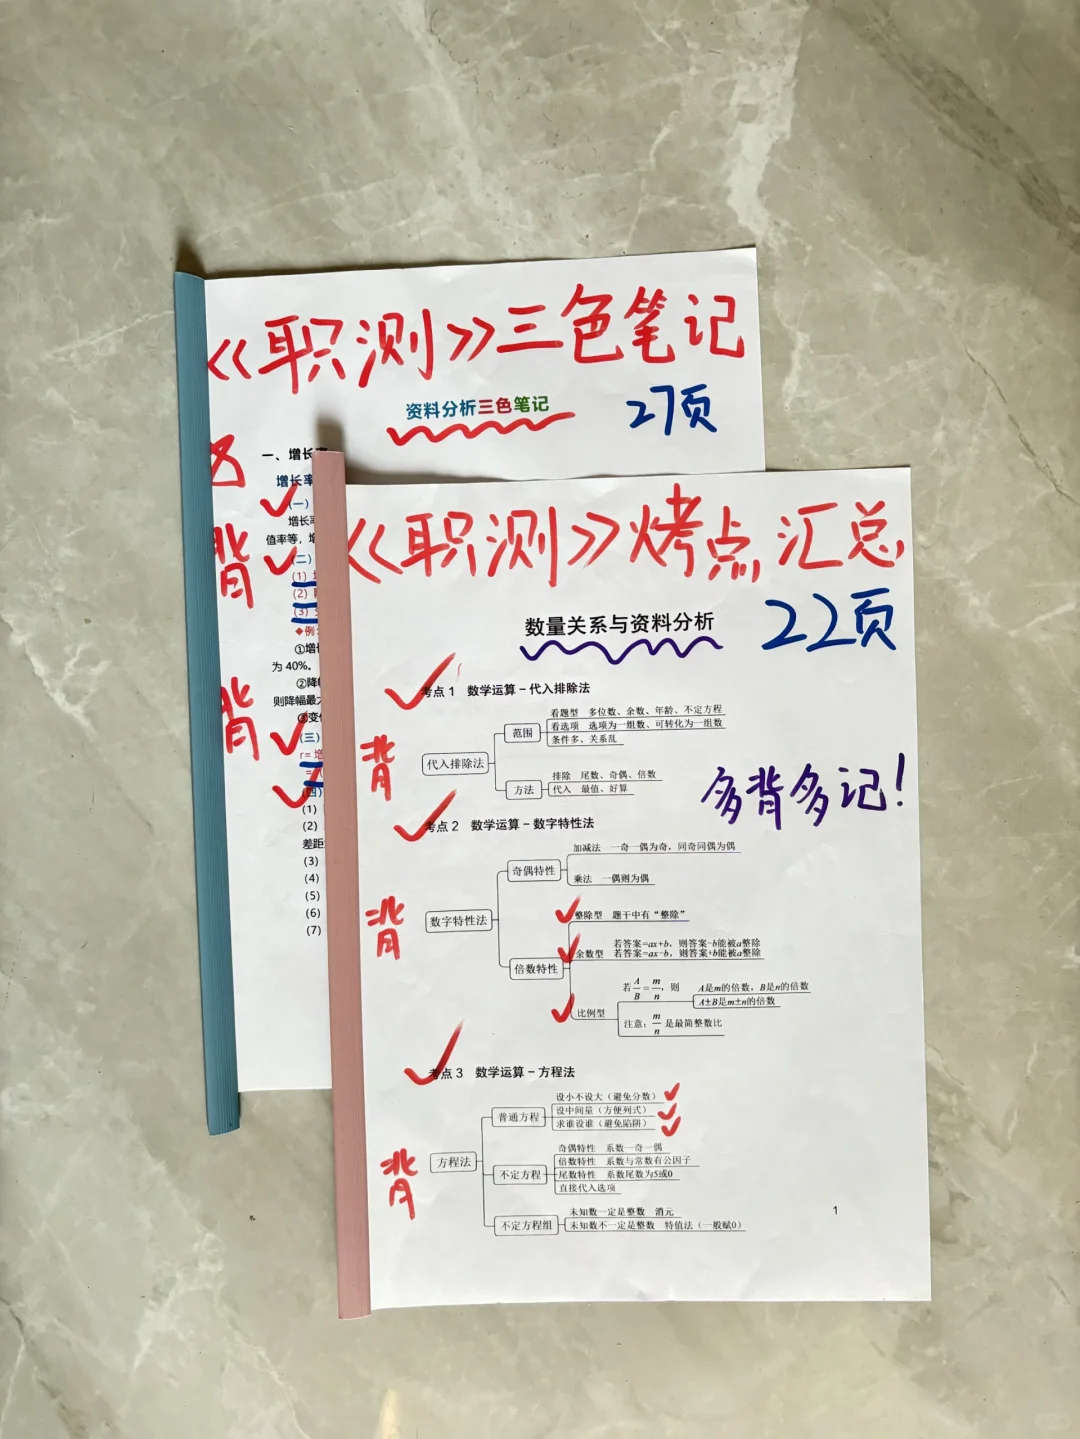 《职测》三色笔记
资料分析三色笔记
27页
一、增长率
背
增长率
(一)
增长率
值率等，增
(二)
(1)
(2)
(3)
◆例
①增长
为 40%。
②降
则降幅最
背
③变
(三)
r= 增
(四)
(1)
(2)
差距
(3)
(4)
(5)
(6)
(7)
《职测》烤点汇总
数量关系与资料分析
22页
考点 1 数学运算－代入排除法
背
代入排除法
范围
看题型 多位数、余数、年龄、不定方程
看选项 选项为一组数、可转化为一组数
条件多、关系乱
方法
排除 尾数、奇偶、倍数
代入 最值、好算
多背多记！
考点 2 数学运算－数字特性法
背
数字特性法
奇偶特性
加减法 一奇一偶为奇，同奇同偶为偶
乘法 一偶则为偶
倍数特性
整除型 题干中有“整除”
余数型 若答案=ax+b，则答案-b能被a整除
若答案=ax-b，则答案+b能被a整除
比例型
若A/B=m/n，则 A是m的倍数，B是n的倍数
A±B是m±n的倍数
注意：m/n 是最简整数比
考点 3 数学运算－方程法
背
方程法
普通方程
设小不设大（避免分数）
设中间量（方便列式）
求谁设谁（避免陷阱）
不定方程
奇偶特性 系数一奇一偶
倍数特性 系数与常数有公因子
尾数特性 系数尾数为5或0
直接代入选项
不定方程组
未知数一定是整数 消元
未知数不一定是整数 特值法（一般赋0）
1